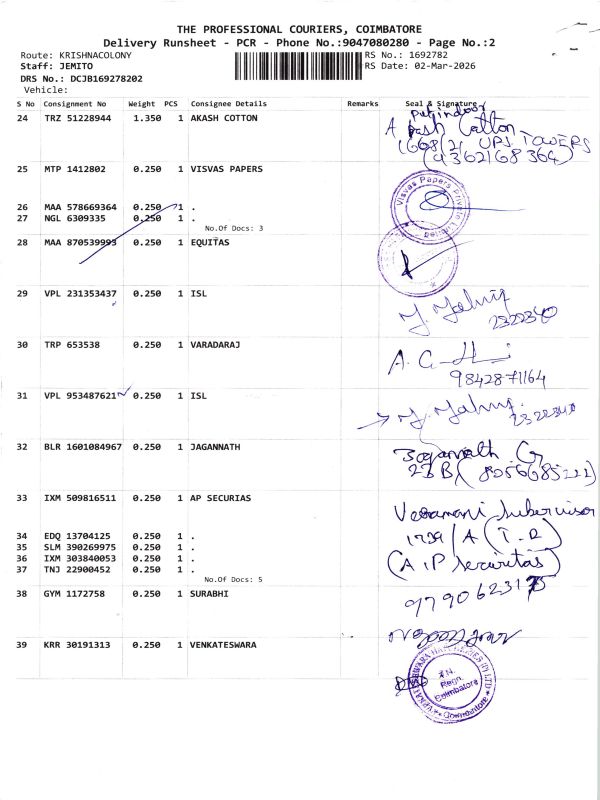 THE PROFESSIONAL COURIERS, COIMBATORE
Delivery Runsheet - PCR - Phone No.:9047080280 - Page No.:2
Route: KRISHNACOLONY
RS No.: 1692782
Staff: JEMITO
RS Date: 02-Mar-2026
DRS No.: DCJB169278202
Vehicle:
S No Consignment No Weight PCS Consignee Details Remarks Seal & Signature
24 TRZ 51228944 1.350 1 AKASH COTTON
1668/21 UPS TOWERS
(9362168364)
25 MTP 1412802 0.250 1 VISVAS PAPERS
Visvas Papers Private Limited
26 MAA 578669364 0.250 1 .
27 NGL 6309335 0.250 1 .
No.Of Docs: 3
28 MAA 870539993 0.250 1 EQUITAS
29 VPL 231353437 0.250 1 ISL
2322340
30 TRP 653538 0.250 1 VARADARAJ
9842871164
31 VPL 953487621 0.250 1 ISL
2322340
32 BLR 1601084967 0.250 1 JAGANNATH
Jagannath G
23B (8056685222)
33 IXM 509816511 0.250 1 AP SECURIAS
Veeramani Subervisor
1739/A (T.R)
(A.P Securitas)
34 EDQ 13704125 0.250 1 .
35 SLM 390269975 0.250 1 .
36 IXM 303840053 0.250 1 .
37 TNJ 22900452 0.250 1 .
No.Of Docs: 5
38 GYM 1172758 0.250 1 SURABHI
39 KRR 30191313 0.250 1 VENKATESWARA
VENKATESHWARA HATCHERIES (P) LTD
Regn.
Coimbatore
Coimbatore